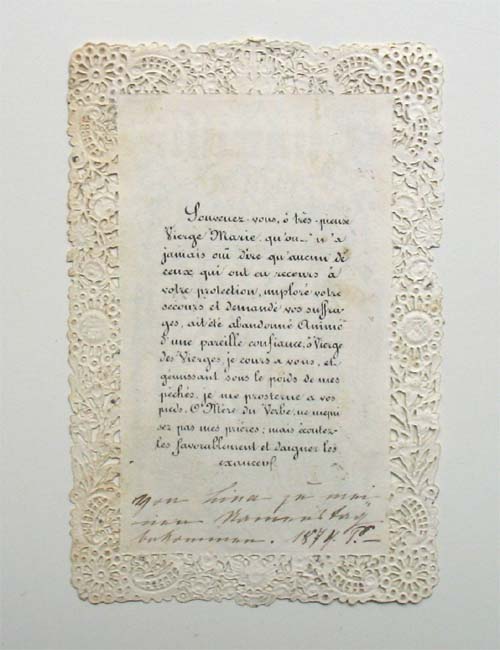 Souvenez-vous, ô très-pieuse
Vierge Marie, qu'on n'a
jamais oui dire qu'aucun de
ceux qui ont eu recours à
votre protection, imploré votre
secours et demandé vos suffra-
ges, ait été abandonné Animé
d'une pareille confiance, ô Vierge
des Vierges, je cours a vous, et
gémissant sous le poids de mes
péchés, je me prosterne a vos
pieds. O Mère du Verbe, ne mépri
sez pas mes prières; mais écoutez-
les favorablement et daignez les
exaucer
Von Lina zu mei-
nen Namenstag
bekommen. 1874.